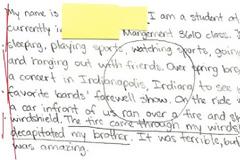 My name is I am a student at
currently in Mangement 3610 class. I
sleeping, playing sports, watching sports, going
and hanging out with friends. Over spring break
a concert in Indianapolis, Indiana to see
favorite bands' farewell show. On the ride
a car infront of us ran over a tire and sh
windshield. The tire came through my winds
decapitated my brother. It was terrible, but
was amazing.